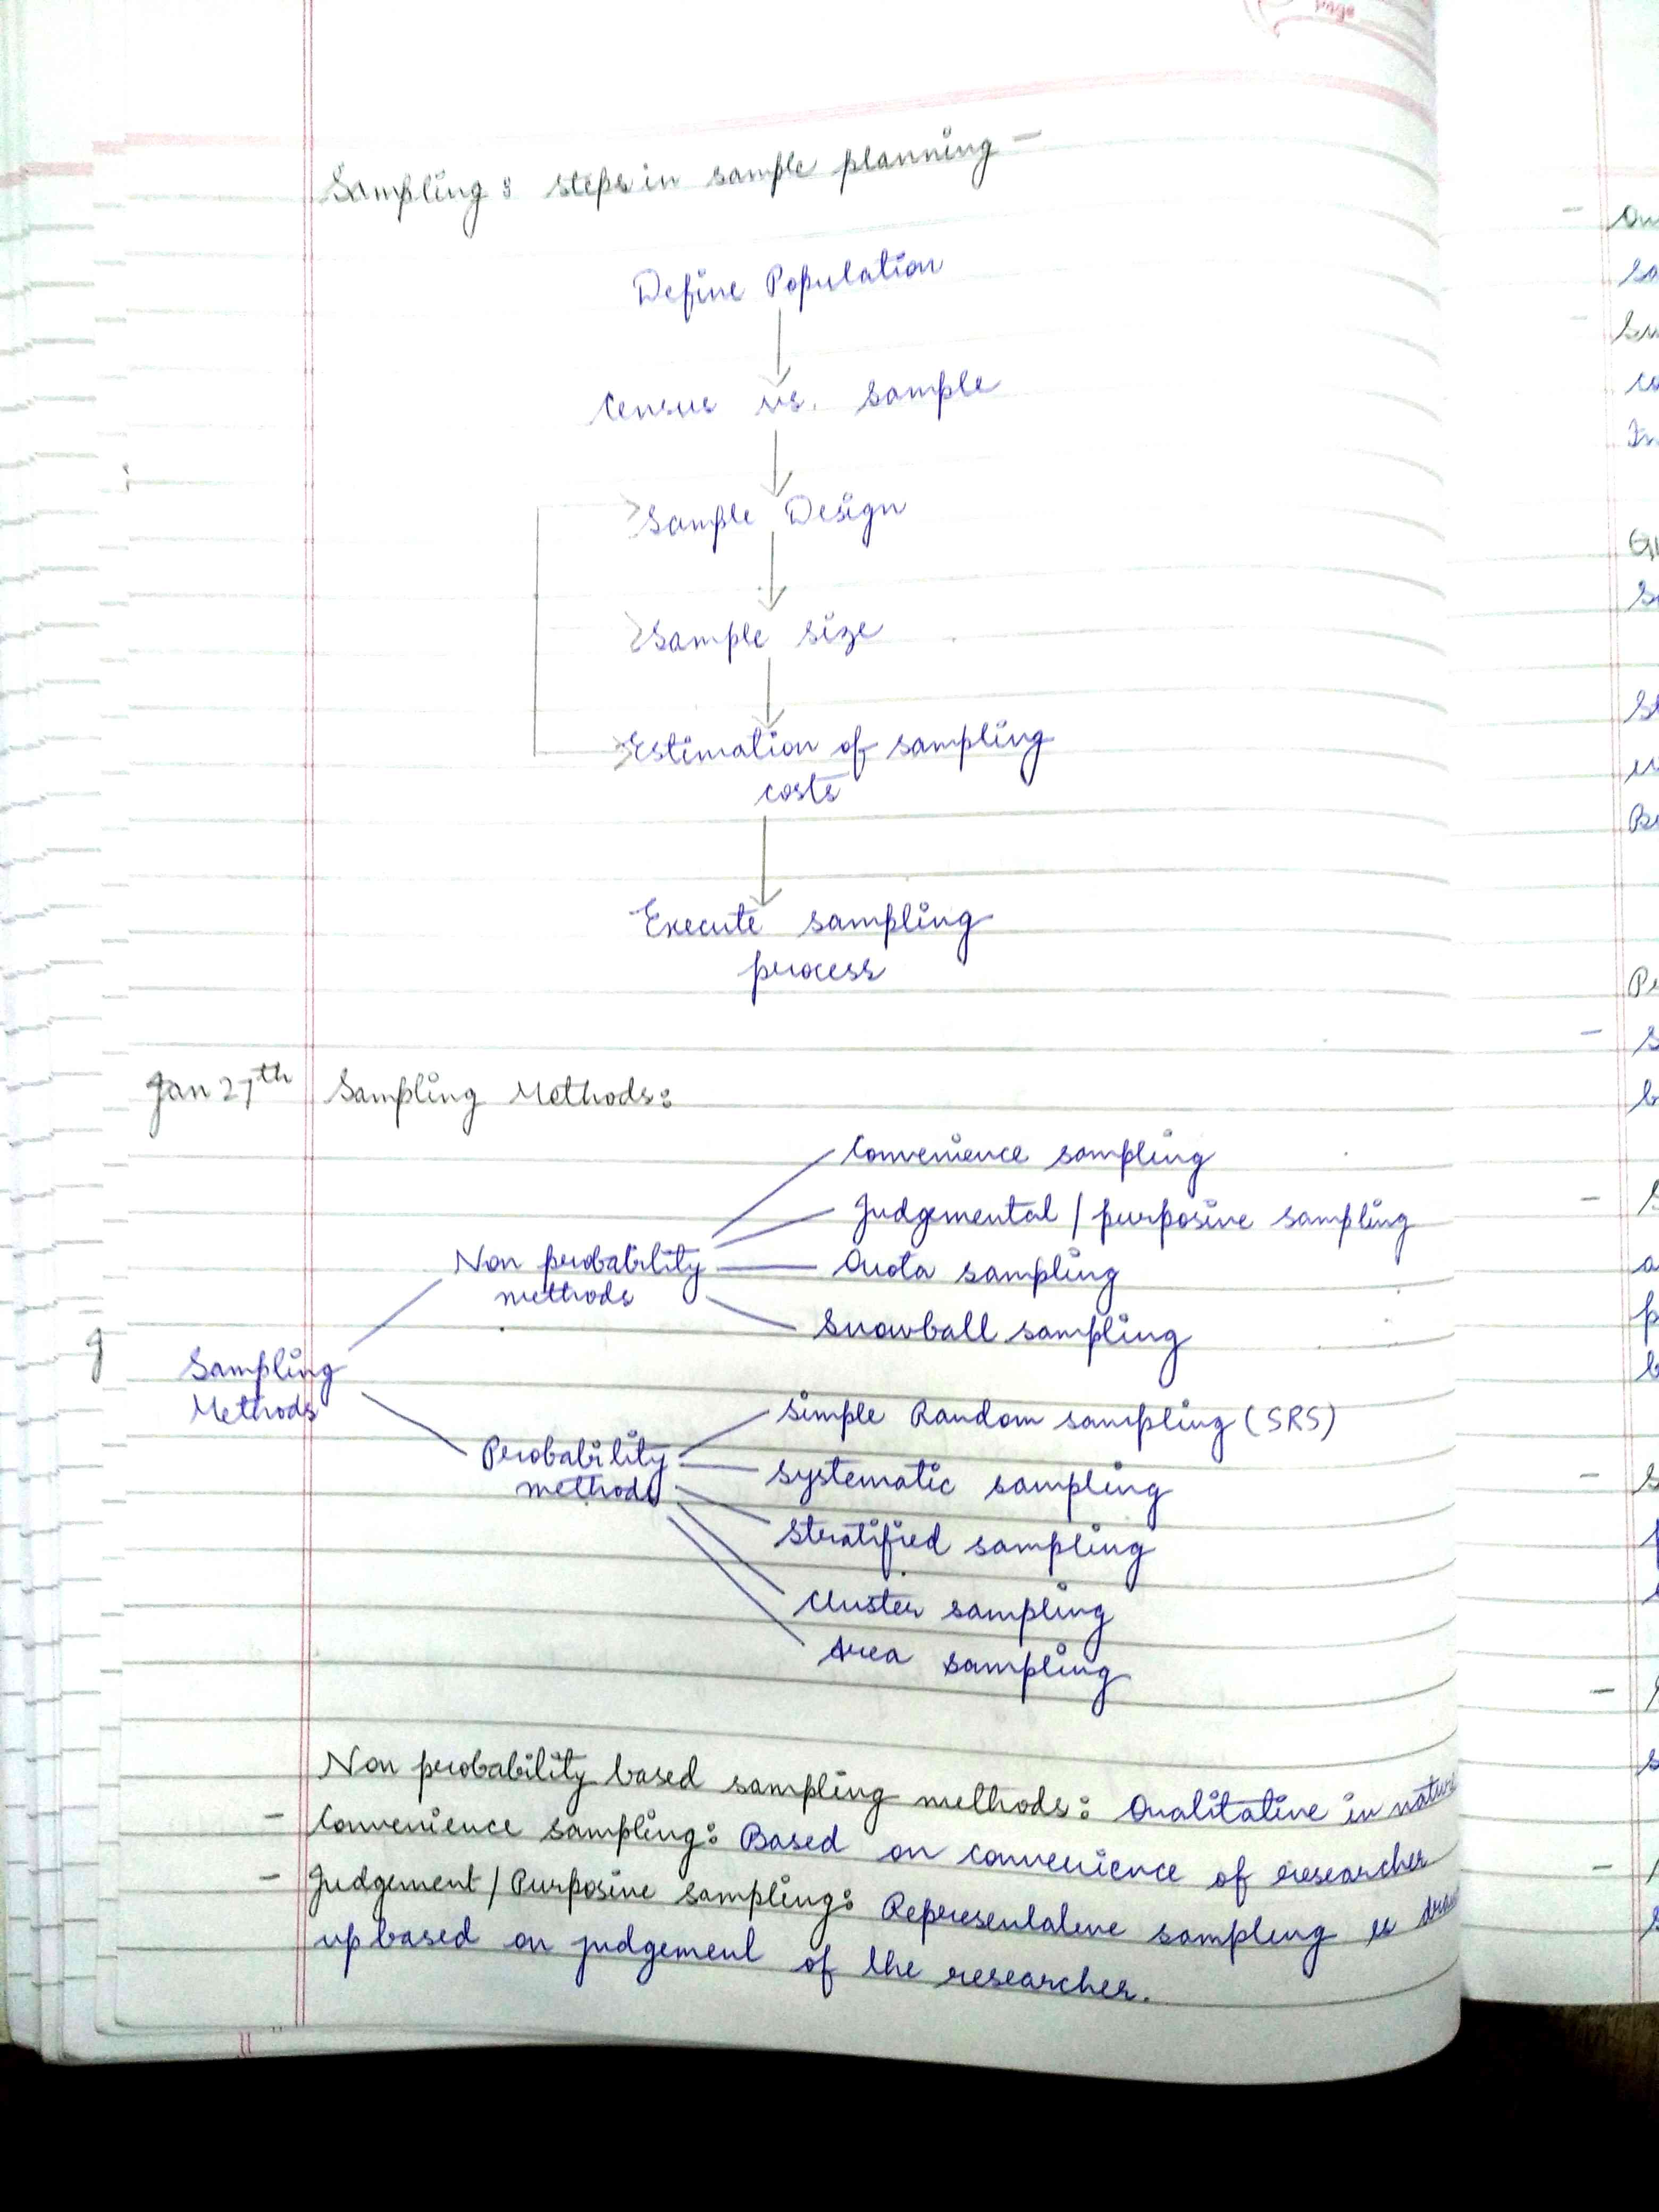 Page
Sampling: steps in sample planning -
Define Population
Census vs. sample
Sample Design
Sample size
Estimation of sampling
costs
Execute sampling
process
Jan 27th Sampling Methods:
Convenience sampling
Judgemental / purposive sampling
Non probability
methods
Quota sampling
Snowball sampling
Sampling
Methods
Simple Random sampling (SRS)
Probability
methods
systematic sampling
Stratified sampling
Cluster sampling
Area sampling
Non probability based sampling methods: Qualitative in nature
- Convenience sampling: Based on convenience of researcher
- Judgement / Purposive sampling: Representative sampling is
up based on judgement of the researcher.